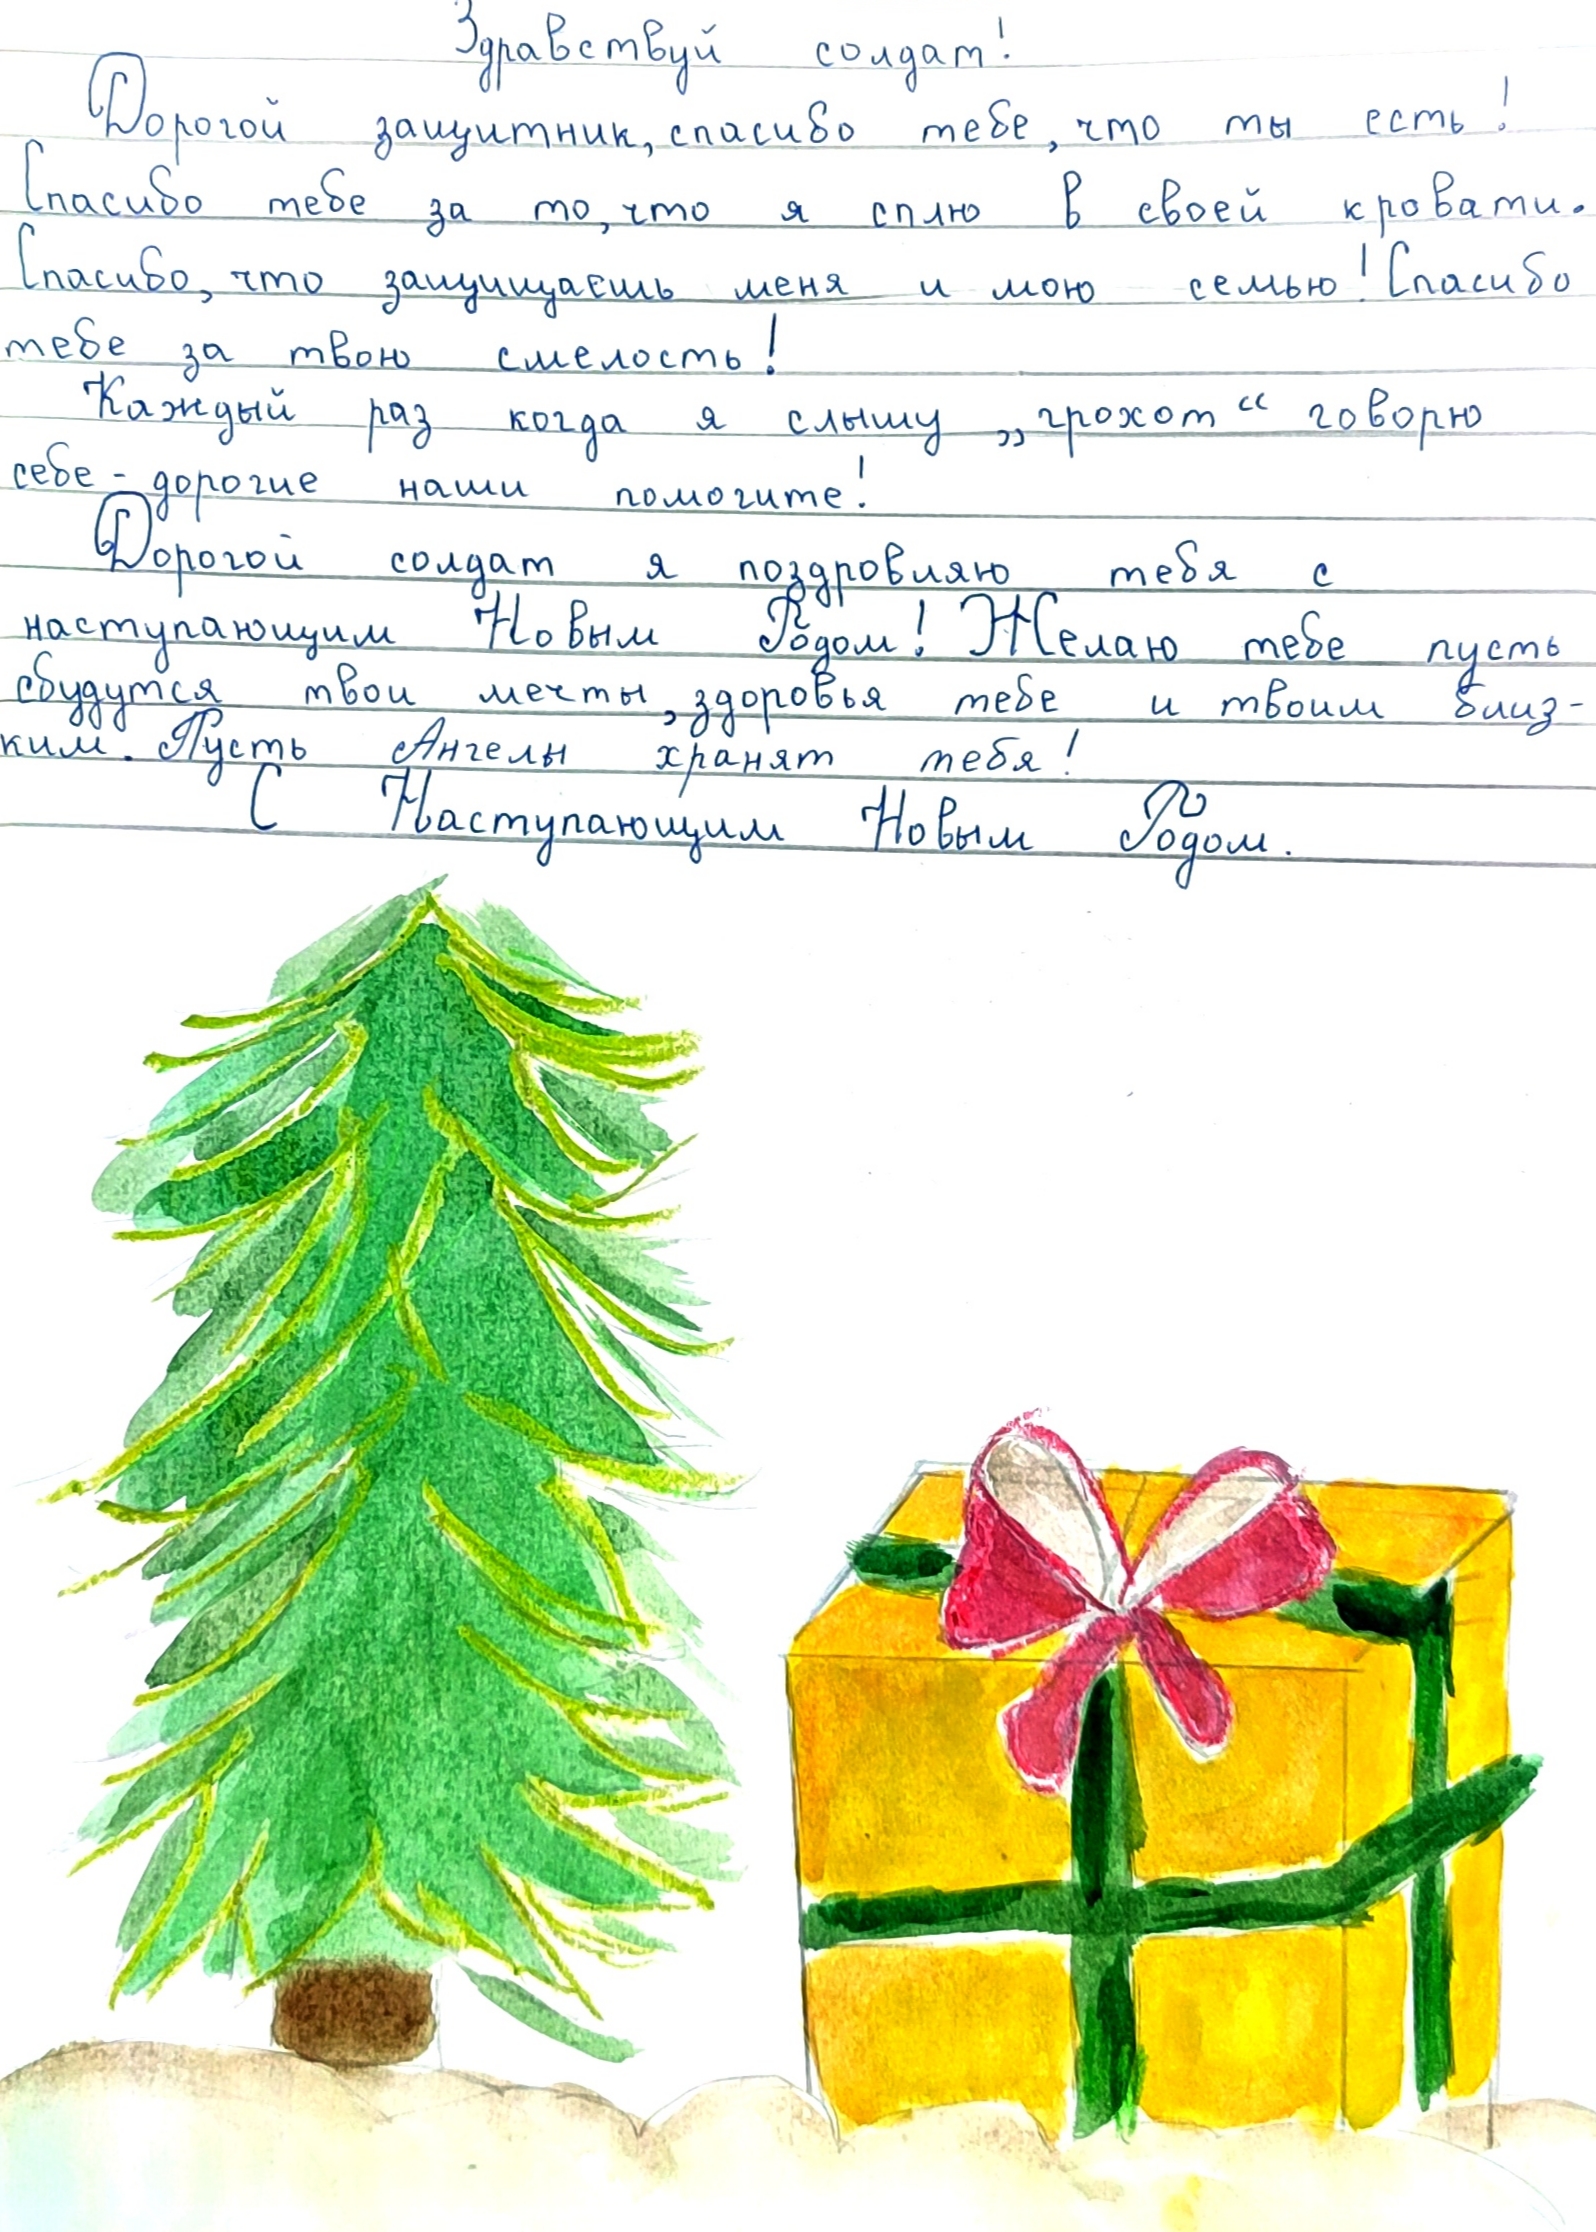 Здравствуй солдат!
Дорогой защитник, спасибо тебе, что ты есть!
Спасибо тебе за то, что я сплю в своей кровати.
Спасибо, что защищаешь меня и мою семью! Спасибо
тебе за твою смелость!
Каждый раз когда я слышу „грохот“ говорю
себе - дорогие наши помогите!
Дорогой солдат я поздровляю тебя с
наступающим Новым Годом! Желаю тебе пусть
сбудутся твои мечты, здоровья тебе и твоим близ-
ким. Пусть Ангелы хранят тебя!
С Наступающим Новым Годом.